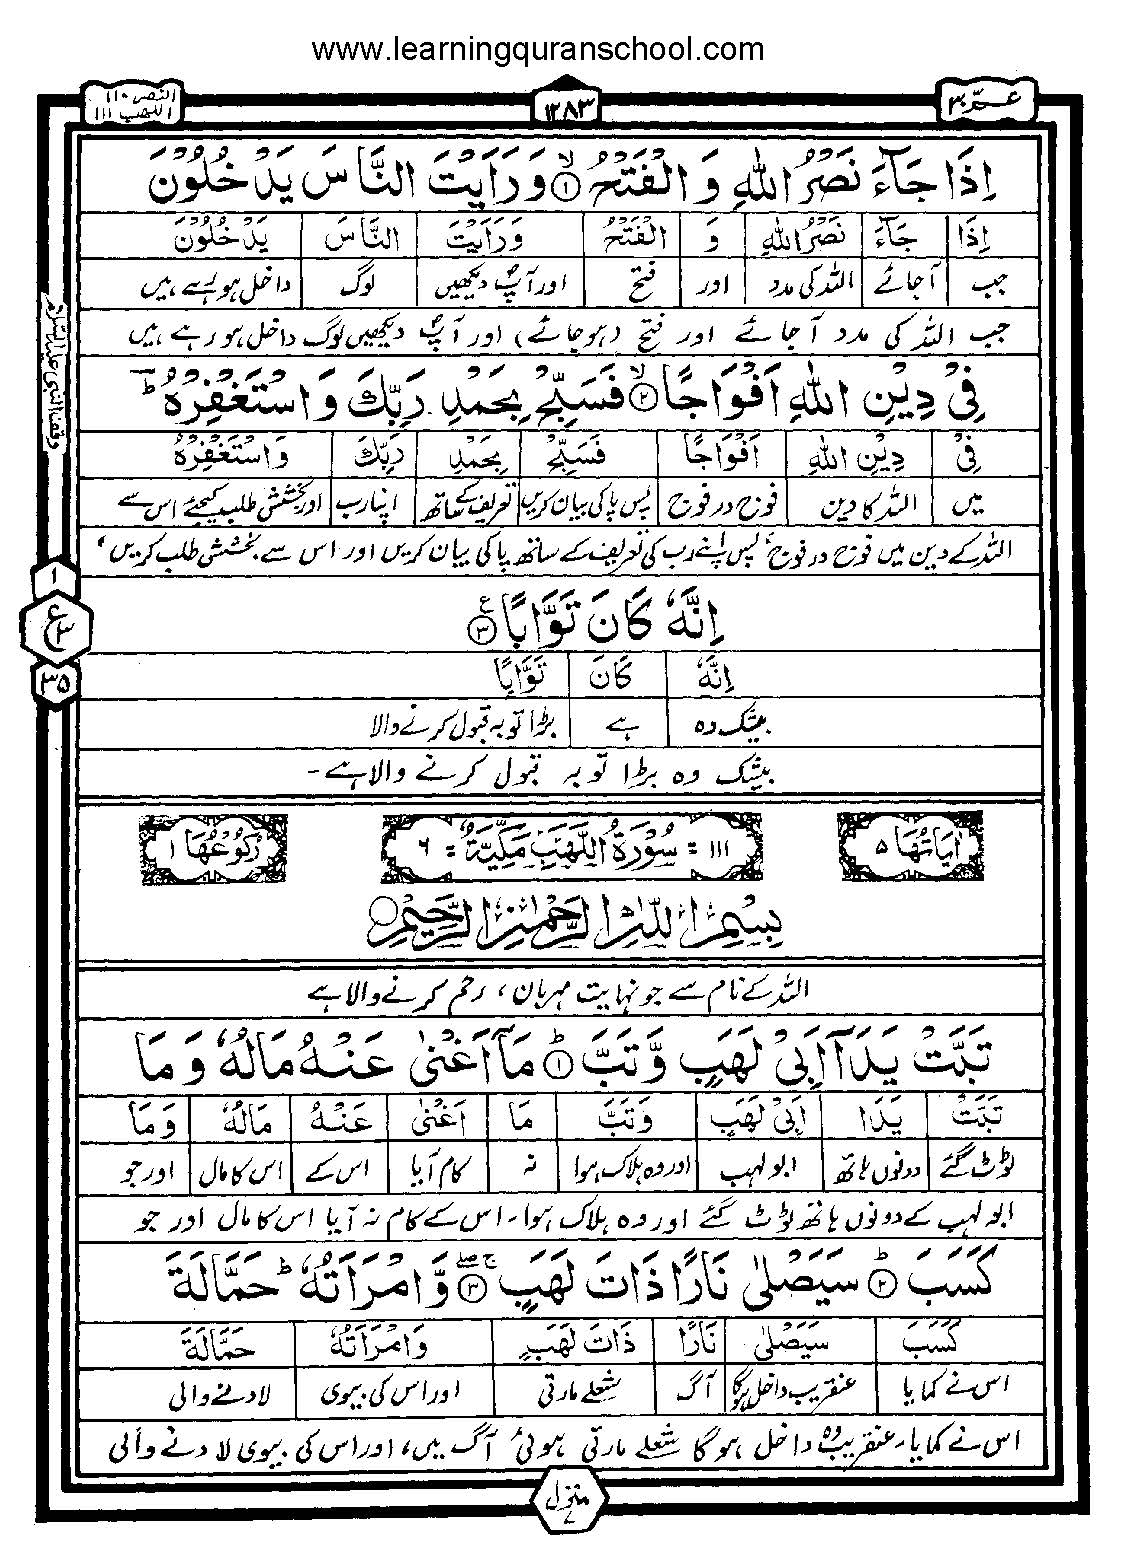 www.learningquranschool.com
عـمّ ٣٠
١٢٨٣
النصر ١١٠
اللهب ١١١
اِذَا جَآءَ نَصْرُ اللّٰهِ وَ الْفَتْحُ ۙ﴿۱﴾ وَ رَاَيْتَ النَّاسَ يَدْخُلُوْنَ
اِذَا جَآءَ نَصْرُ اللّٰهِ وَ الْفَتْحُ وَرَاَيْتَ النَّاسَ يَدْخُلُوْنَ
جب آجائے اللہ کی مدد اور فتح اور آپؐ دیکھیں لوگ داخل ہورہے ہیں
جب اللہ کی مدد آجائے اور فتح (ہوجائے) اور آپؐ دیکھیں لوگ داخل ہورہے ہیں
فِىْ دِيْنِ اللّٰهِ اَفْوَاجًا ۙ﴿۲﴾ فَسَبِّحْ بِحَمْدِ رَبِّكَ وَاسْتَغْفِرْهُ ؕ
فِىْ دِيْنِ اللّٰهِ اَفْوَاجًا فَسَبِّحْ بِحَمْدِ رَبِّكَ وَاسْتَغْفِرْهُ
میں اللہ کا دین فوج در فوج پس پاکی بیان کریں تعریف کے ساتھ اپنا رب اور بخشش طلب کیجئے اس سے
اللہ کے دین میں فوج در فوج، پس اپنے رب کی تعریف کے ساتھ پاکی بیان کریں اور اس سے بخشش طلب کریں،
اِنَّهٗ كَانَ تَوَّابًا ﴿۳﴾ ع
اِنَّهٗ كَانَ تَوَّابًا
بیشک وہ ہے بڑا توبہ قبول کرنے والا
بیشک وہ بڑا توبہ قبول کرنے والا ہے۔
وقف النبی علیہ السلام
١
ع ٣
٣٥
اٰيَاتُهَا ٥
١١١ = سُوْرَةُ اللَّهَبِ مَكِّيَّةٌ = ٦
رُكُوْعُهَا ١
بِسْمِ اللّٰهِ الرَّحْمٰنِ الرَّحِيْمِ
اللہ کے نام سے جو نہایت مہربان، رحم کرنے والا ہے
تَبَّتْ يَدَاۤ اَبِىْ لَهَبٍ وَّ تَبَّ ؕ﴿۱﴾ مَاۤ اَغْنٰى عَنْهُ مَالُهٗ وَ مَا
تَبَّتْ يَدَا اَبِىْ لَهَبٍ وَتَبَّ مَا اَغْنٰى عَنْهُ مَالُهٗ وَمَا
ٹوٹ گئے دونوں ہاتھ ابو لہب اور وہ ہلاک ہوا نہ کام آیا اس کے اس کا مال اور جو
ابو لہب کے دونوں ہاتھ ٹوٹ گئے اور وہ ہلاک ہوا۔ اس کے کام نہ آیا اس کا مال اور جو
كَسَبَ ؕ﴿۲﴾ سَيَصْلٰى نَارًا ذَاتَ لَهَبٍ ۚۖ﴿۳﴾ وَّ امْرَاَتُهٗ ؕ حَمَّالَةَ
كَسَبَ سَيَصْلٰى نَارًا ذَاتَ لَهَبٍ وَامْرَاَتُهٗ حَمَّالَةَ
اس نے کمایا عنقریب داخل ہوگا آگ شعلے مارتی اور اس کی بیوی لادنے والی
اس نے کمایا۔ عنقریب وہ داخل ہوگا شعلے مارتی ہوئی آگ میں، اور اس کی بیوی لادنے والی
منزل ٧